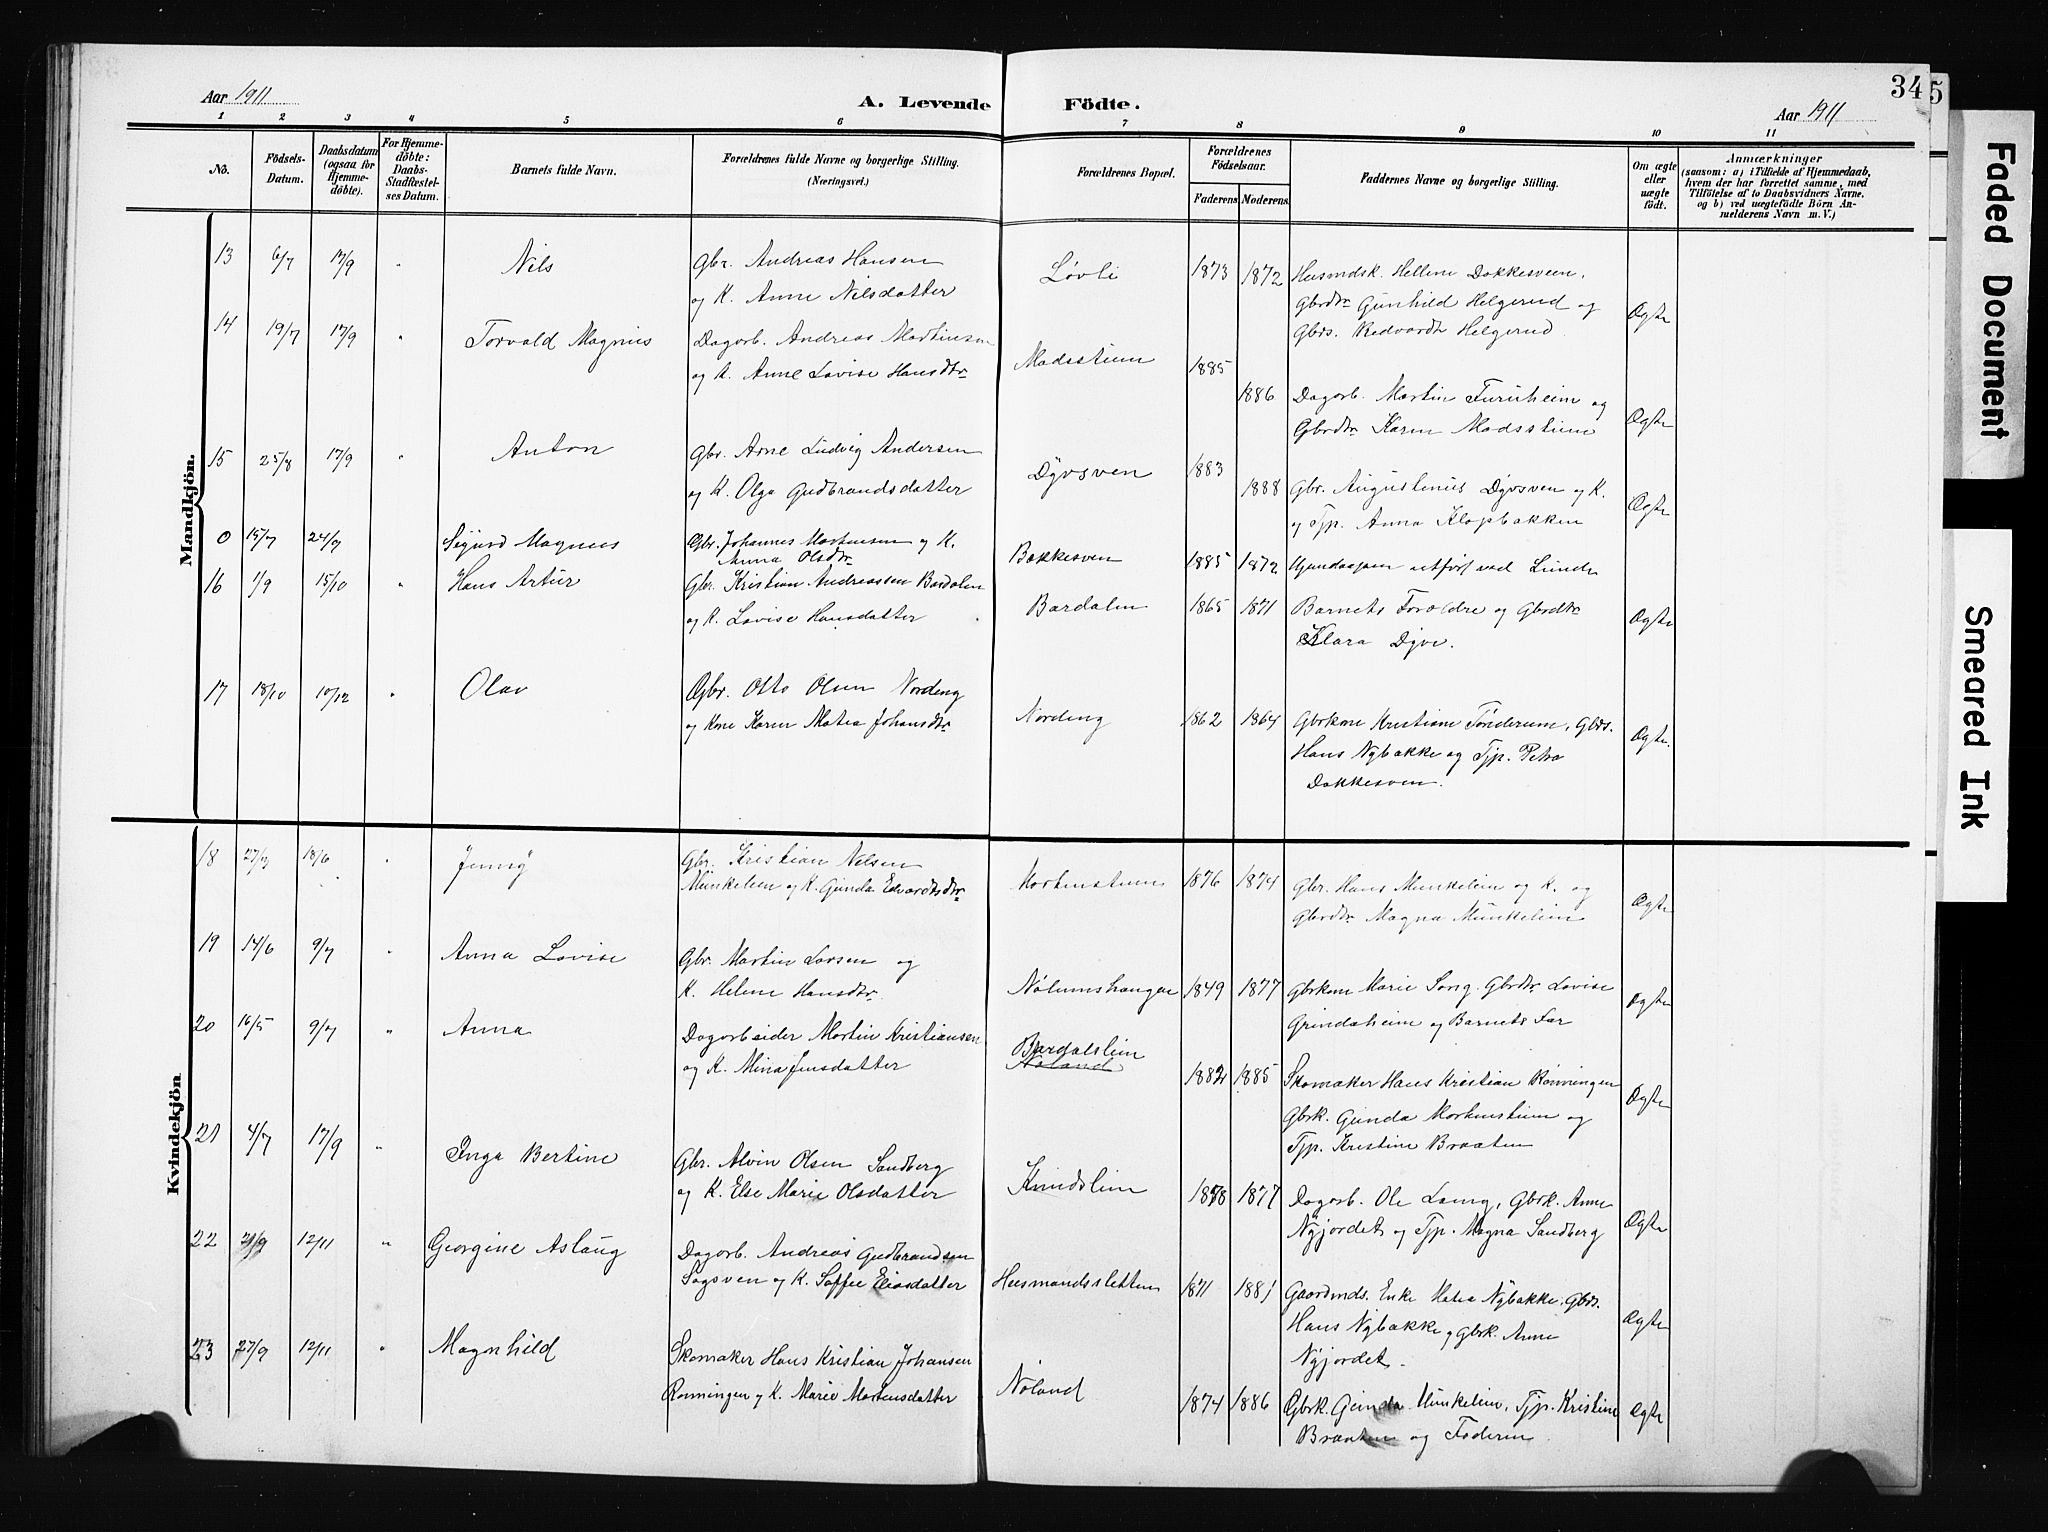 34
5
Aar 1911
A. Levende Födte.
Aar 1911
1 2 3 4 5 6 7 8 9 10 11
No.
Födsels-
Datum.
Daabsdatum
(ogsaa for
Hjemme-
döbte).
For Hjemme-
döbte:
Daabs-
Stadfæstel-
ses Datum.
Barnets fulde Navn.
Forældrenes fulde Navne og borgerlige Stilling.
(Næringsvei.)
Forældrenes Bopæl.
Forældrenes
Födselsaar.
Faderens
Moderens
Faddernes Navne og borgerlige Stilling.
Om ægte
eller
uægte
født.
Anmærkninger
(saasom: a) i Tilfælde af Hjemmedaab,
hvem der har forrettet samme, med
Tilföielse af to Daabsvidners Navne,
og b) ved uægtefödte Börn An-
melderens Navn m. V.)
Mandkjön.
13 6/7 17/9 " Nils Gbr. Andreas Hansen
og K. Anne Nilsdatter
Løvli 1873 1872 Husmdsk. Hellene Dokkesveen,
Gbrdtr Gunhild Helgerud og
Gbrs. Redvardt Helgerud. Ægte
14 19/7 17/9 " Torvald Magnus Dagarb. Andreas Martinsen
og K. Anne Lovise Hansdtr
Madsstuen 1885 1886 Dagarb. Martin Furuheim og
Gbrdtr Karen Madsstuen Ægte
15 25/8 17/9 " Anton Gbr. Arne Ludvig Andersen
og K. Olga Gudbrandsdatter
Dyvsven 1883 1888 Gbr. Augustinus Dyvsven og K.
og Tjp. Anna Klopbakken Ægte
0 15/7 24/7 Sigurd Magnus Gbr. Johannes Mortensen og K.
Anna Olsdtr
Bakkesven 1885 1872 Igjendaapen utført ved Lunde
16 1/9 15/10 " Hans Artur Gbr. Kristian Andreassen Bardalen
og K. Lovise Hansdatter
Bardalen 1865 1871 Barnets Foræld­re og Gbrdtr
Klara Dyve. Ægte
17 18/10 10/12 " Olav Gbr. Otto Olsen Nordeng
og Kne Karen Matea Johansdtr
Nordeng 1862 1864 Gbrkone Kristiane Tønderum, Gbrs.
Hans Nybakke og Tjp. Petra
Dokkesven. Ægte.
Kvindekjön
18 18/6 " Jenny Gbr. Kristian Nilsen
Munkelien og K. Gunda Edvardtsdtr
Mortenstuen 1876 1874 Gbr. Hans Munkelien og K. og
Gbrdtr Magna Munkelien Ægte
19 14/6 9/7 " Anna Lovise Gbr. Martin Larsen og
K. Helene Hansdtr.
Nølumshaugen 1849 1877 Gbrkone Marie Sang. Gbrdtr. Lovise
Grindaheim og Barnets Far Ægte
20 16/5 9/7 " Anna Dagarbeider Martin Kristiansen
og K. Mina Jensdatter
Bardalslien
Nøland
1882 1885 Skomaker Hans Kristian Rønningen
Gbrk. Gunda Mortenstuen og
Tjp. Kristine Braaten Ægte
21 4/7 17/9 " Inga Bertine Gbr. Alvin Olsen Sandberg
og K. Else Marie Olsdatter
Knudslien 1878 1877 Dagarb. Ole Laang, Gbrk. Anne
Nyjordet og Tjp. Magna Sandberg Ægte
22 21/9 12/11 " Georgine Aslaug Dagarb. Andreas Gudbrandsen
Sagsven og K. Soffie Eliasdatter
Husmandssletten 1871 1881 Gaardmds. Enke Matea Nybakke, Gbrs.
Hans Nybakke og Gbrk. Anne
Nyjordet. Ægte
23 27/9 12/11 " Magnhild Skomaker Hans Kristian Johansen
Rønningen og K. Marie Mortensdatter
Nøland 1874 1886 Gbrk. Gunda Munkelien, Tjp. Kristine
Braaten og Faderen Ægte
Faded Document
Smeared Ink